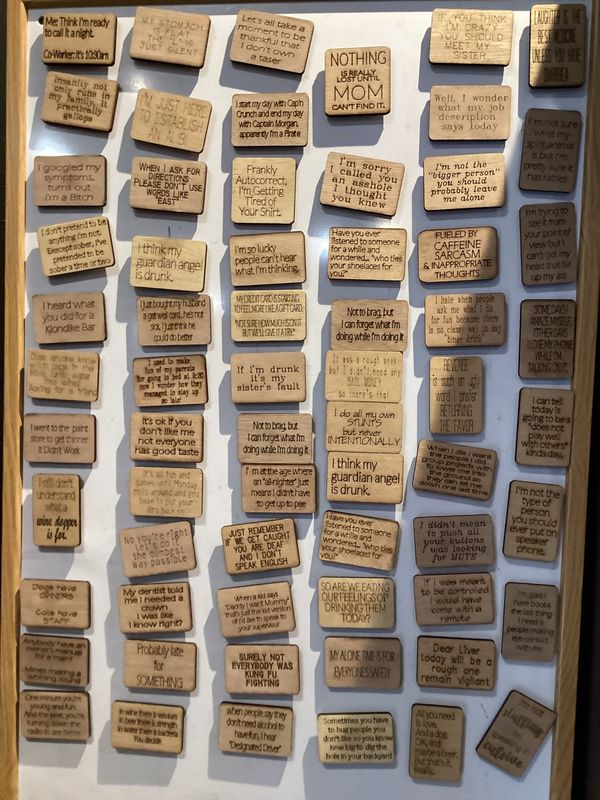 Me: Think I'm ready
to call it a night.
Co-Worker: It's 10:30am
Insanity not
only runs in
my family, It
practically
gallops
I googled my
symptoms,
turns out
I'm a Bitch
I don't pretend to be
anything I'm not.
Except sober, I've
pretended to be
sober a time or two
I heard what
you did for a
Klondike Bar
I went to the paint
store to get thinner
It Didn't Work
I still don't
understand
what a
wine stopper
is for.
Dogs have
OWNERS
Cats have
STAFF
Anybody have an
owner's manual
for a
Mines making a
whining sound
One minute you're
young and fun.
And the next, you're
turning down the
radio to see better
MY STOMACH
IS FLAT
THE "L" IS
JUST SILENT
I'M JUST HERE
TO ESTABLISH
AN ALIBI
WHEN I ASK FOR
DIRECTIONS
PLEASE DON'T USE
WORDS LIKE
"EAST"
I think my
guardian angel
is drunk.
I just bought my husband
a get well card, he's not
sick, I just think he
could do better
I used to make
fun of my parents
for going to bed at
now I wonder how
they managed to stay up
so late!
It's ok if you
don't like me
not everyone
has good taste
It's all fun and
games until Monday
rolls around and you
have to put your
Bra back on
No you're right
let's do it
the dumbest
way possible
My dentist told
me I needed a
crown
I was like
I know right?
Probably late
for
SOMETHING
In wine there is wisdom
In beer there is strength
In water there is bacteria
You decide
Let's all take a
moment to be
thankful that
I don't own
a taser
I start my day with Cap'n
Crunch and end my day
with Captain Morgan,
apparently I'm a Pirate
Frankly
Autocorrect,
I'm Getting
Tired of
Your Shirt.
I'm so lucky
people can't hear
what I'm thinking.
MY CREDIT CARD IS STARTING
TO FEEL MORE LIKE A GIFT CARD.
"NOT SURE HOW MUCH IS ON IT
BUT WE'LL GIVE IT A TRY."
If I'm drunk
it's my
sister's fault
Not to brag, but
I can forget what I'm
doing while I'm doing it
I'm at the age where
an "all-nighter" just
means I didn't have
to get up to pee
JUST REMEMBER
IF WE GET CAUGHT
YOU ARE DEAF
AND I DON'T
SPEAK ENGLISH
When a kid says
"Daddy I want Mommy"
that's just the kid version
of I'd like to speak to
your supervisor
SURELY NOT
EVERYBODY WAS
KUNG FU
FIGHTING
When people say
they don't need alcohol to
have fun, I hear
"Designated Driver"
NOTHING
IS REALLY
LOST UNTIL
MOM
CAN'T FIND IT.
I'm sorry
I called you
an asshole
I thought
you knew
Have you ever
listened to someone
for a while and
wondered... "who ties
your shoelaces for
you?"
Not to brag, but
I can forget what I'm
doing while I'm doing it
It was a rough week
but I didn't need any
BAIL MONEY
so there's that
I do all my own
STUNTS
but never
INTENTIONALLY
I think my
guardian angel
is drunk.
Have you ever
listened to someone
for a while and
wondered... "who ties
your shoelaces for
you?"
SO ARE WE EATING
OUR FEELINGS OR
DRINKING THEM
TODAY?
MY ALONE TIME IS FOR
EVERYONE'S SAFETY
Sometimes you have
to hug people you
don't like so you know
how big to dig the
hole in your backyard
IF YOU THINK
I'M CRAZY
YOU SHOULD
MEET MY
SISTER
Well, I wonder
what my job
description
says today
I'm not the
"bigger person"
you should
probably leave
me alone
FUELED BY
CAFFEINE
SARCASM
& INAPPROPRIATE
THOUGHTS
I hate when people
ask me what I do
for fun because there
is no classy way to say
"binge drink"
REVENGE
is such an ugly
word I prefer
RETURNING
THE FAVOR
When I die I want
the people I did
group projects with
to lower me into
the ground so
they can let me
down one last time
I didn't mean
to push all
your buttons
I was looking
for MUTE
If I was meant
to be controlled
I would have
come with a
remote
Dear Liver
today will be a
rough one
remain vigilant
All you need
is love.
And a dog.
OK, and
maybe a beer.
But that's it.
Really.
LAUGHTER IS THE
BEST MEDICINE
UNLESS YOU HAVE
DIARRHEA
I'm not sure
what my
spirit animal
is but I'm
pretty sure it
has rabies
I'm trying to
see it from
your point of
view but I
can't get my
head that far
up my ass
SOME DAYS I
AMAZE MYSELF,
OTHER DAYS
I LOSE MY PHONE
WHILE I'M
TALKING ON IT.
I can tell
today is
going to be a
"does not
play well
with others"
kinda day.
I'm not the
type of
person you
should ever
put on
speaker
phone.
I'm glad I
have boobs
the last thing
I need is
people making
eye contact
with me
I'm not
speaking in
cursive